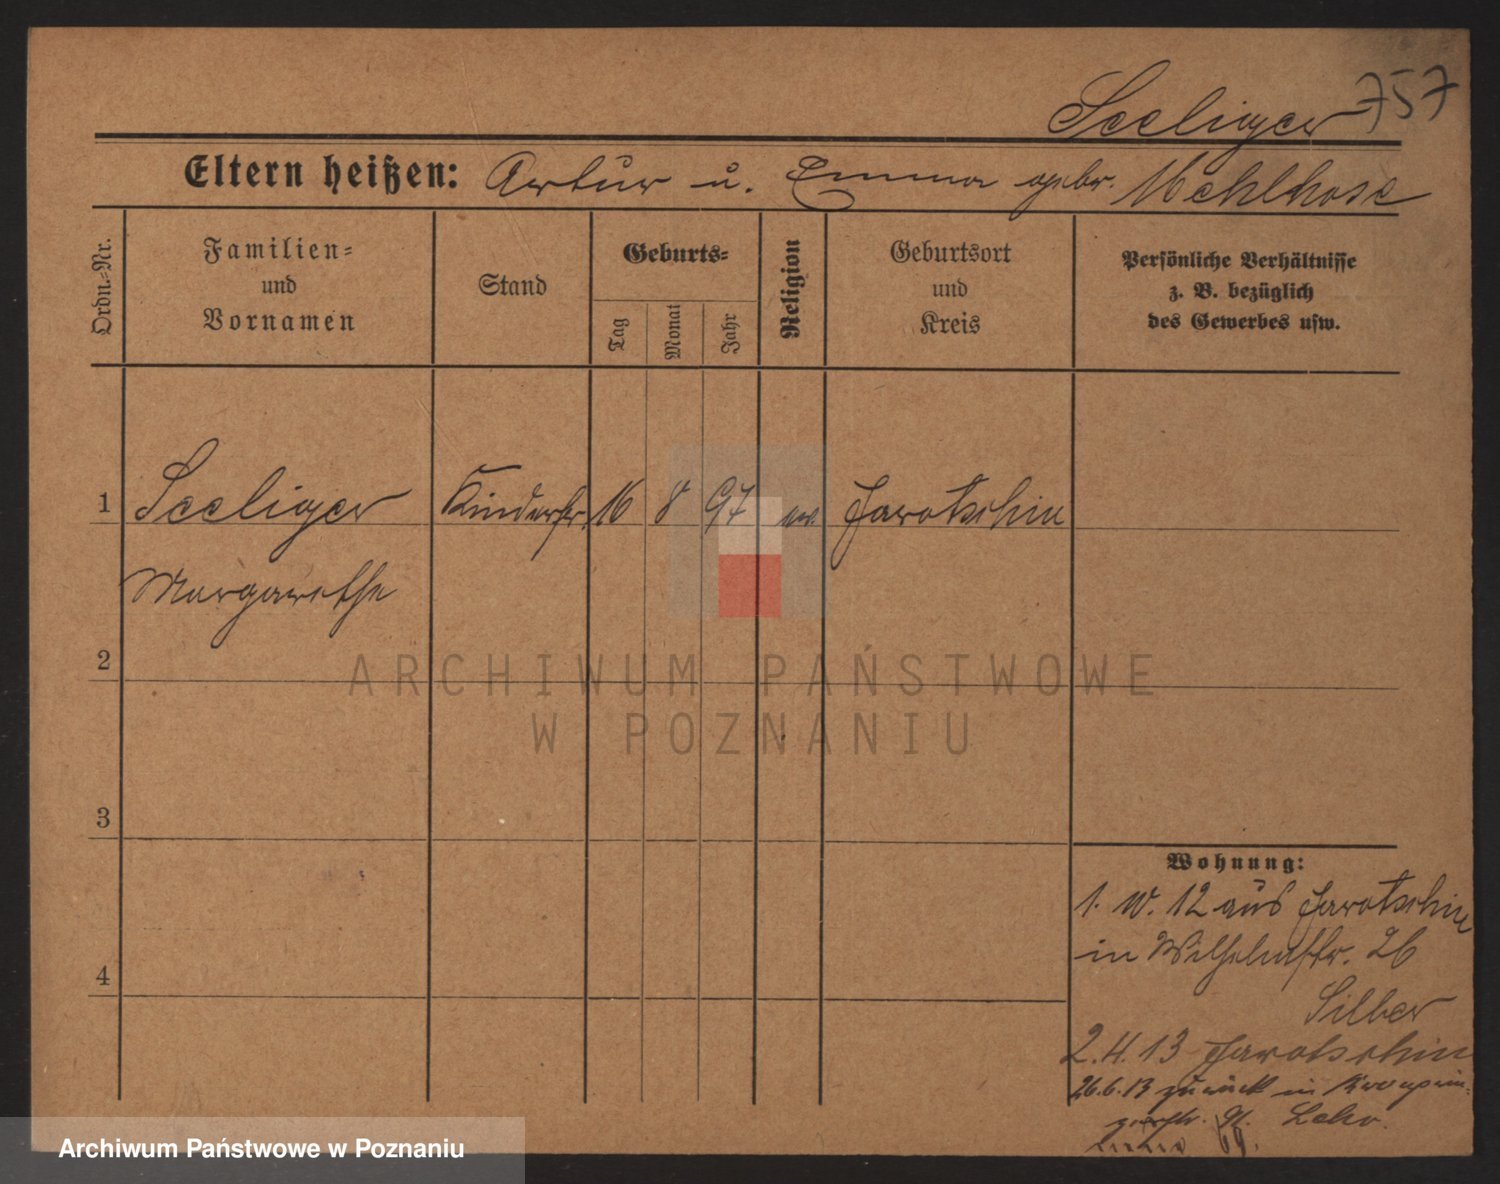 Seeliger 757
Eltern heißen: Artur u. Emma gebr. Mehlhose
Ordn.-Nr.
Familien-
und
Vornamen
Stand
Geburts-
Tag
Monat
Jahr
Religion
Geburtsort
und
Kreis
Persönliche Verhältnisse
z. B. bezüglich
des Gewerbes usw.
1 Seeliger Kinderfr. 16 8 97 ev Jarotschin
Margarethe
2
ARCHIWUM PAŃSTWOWE
W POZNANIU
3
Wohnung:
1. IV. 12 aus Jarotschin
in Wilhelmstr. 26
Silber
4
2.4.13 Jarotschin
26.6.13 zurück in Kronprin-
zenstr. 91.
Archiwum Państwowe w Poznaniu